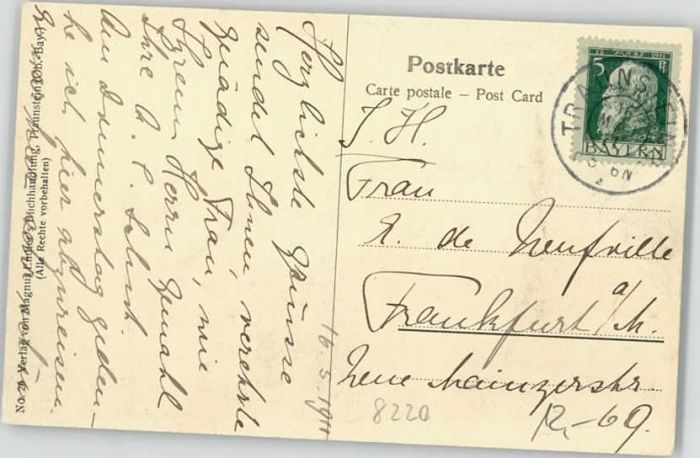 Herzlichste Grüsse
sendet Ihnen verehrte
gnädige Frau, wie
Ihrem Herrn Gemahl
Ihre A. P. Schuch.
Am Donnerstag geden-
ke ich hier abzureisen.
16.5.1911
No. Verlag von Magnus Endter's Buchhandlung, Traunstein (Ob.-Bay.)
(Alle Rechte vorbehalten)
Postkarte
Carte postale – Post Card
I. H.
Frau
A. de Neufville
Frankfurt a/M.
Neue Mainzerstr.
69.
8220
12,-
5
BAYERN
TRAUNSTEIN